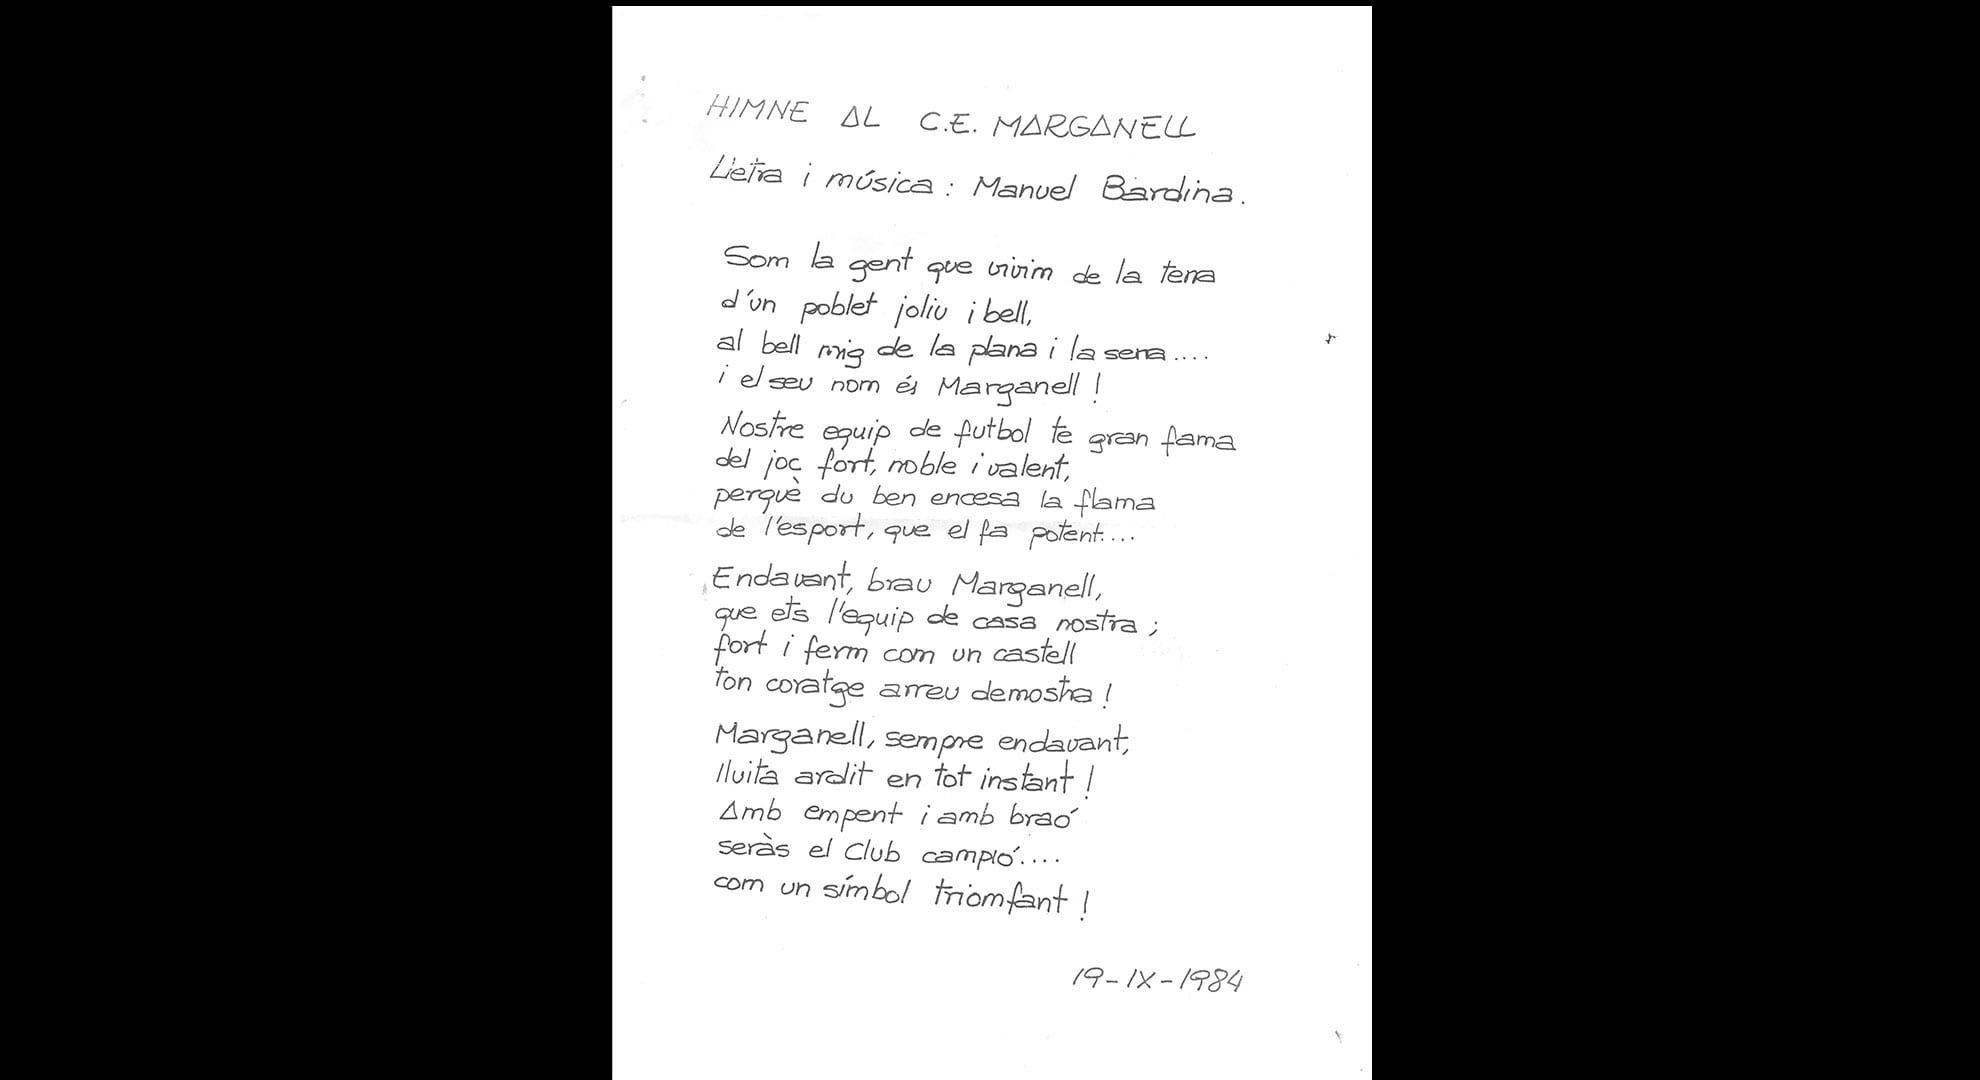 HIMNE AL C.E. MARGANELL
Lletra i música: Manuel Bardina.
Som la gent que vivim de la terra
d'un poblet joliu i bell,
al bell mig de la plana i la serra....
i el seu nom és Marganell!
Nostre equip de futbol te gran fama
del joc fort, noble i valent,
perquè du ben encesa la flama
de l'esport, que el fa potent....
Endavant, brau Marganell,
que ets l'equip de casa nostra;
fort i ferm com un castell
ton coratge arreu demostra!
Marganell, sempre endavant,
lluita ardit en tot instant!
Amb empent i amb braó
seràs el Club campió....
com un símbol triomfant!
19-IX-1984